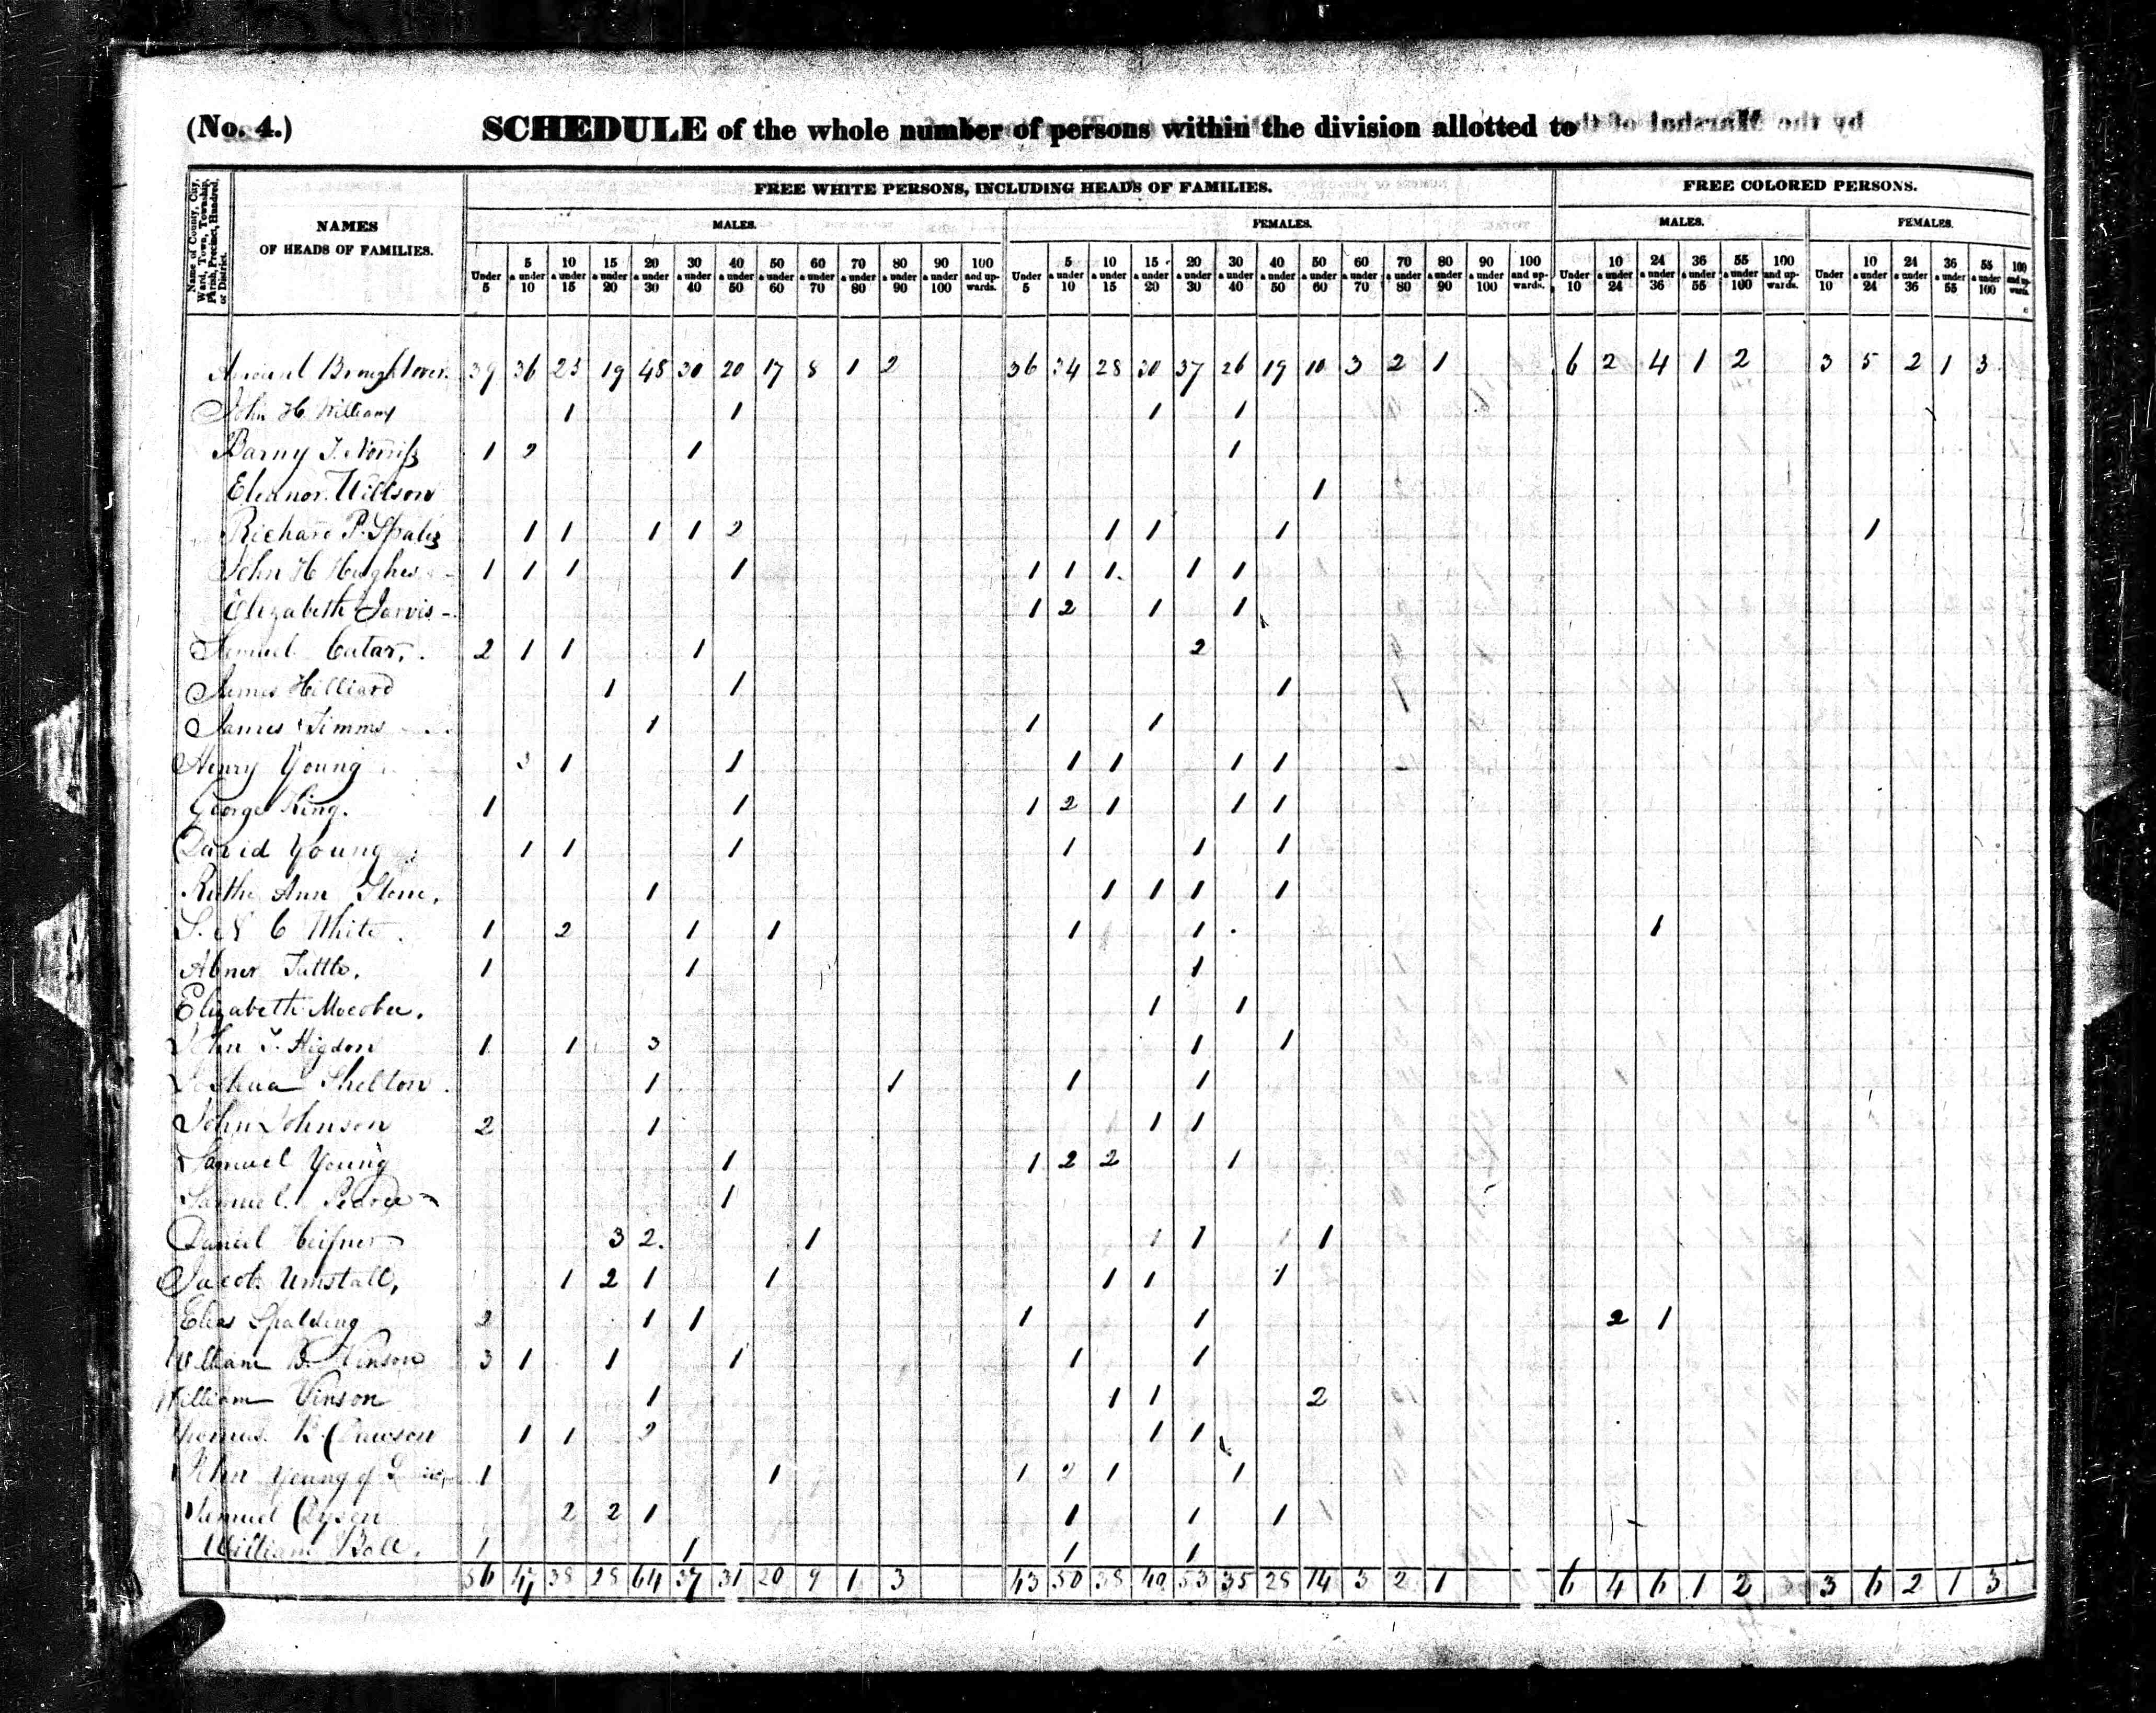 (No. 4.) SCHEDULE of the whole number of persons within the division allotted to
by the Marshal of the
Name of County, City, Ward, Town, Township, Parish, Precinct, Hundred, or District.
NAMES OF HEADS OF FAMILIES.
FREE WHITE PERSONS, INCLUDING HEADS OF FAMILIES. FREE COLORED PERSONS.
MALES. FEMALES. MALES. FEMALES.
Under 5 5 & under 10 10 & under 15 15 & under 20 20 & under 30 30 & under 40 40 & under 50 50 & under 60 60 & under 70 70 & under 80 80 & under 90 90 & under 100 100 and upwards. Under 5 5 & under 10 10 & under 15 15 & under 20 20 & under 30 30 & under 40 40 & under 50 50 & under 60 60 & under 70 70 & under 80 80 & under 90 90 & under 100 100 and upwards. Under 10 10 & under 24 24 & under 36 36 & under 55 55 & under 100 100 and upwards. Under 10 10 & under 24 24 & under 36 36 & under 55 55 & under 100 100 and upwards.
Amount Brought over 39 36 25 19 48 30 20 17 8 1 2 36 34 28 30 37 26 19 10 3 2 1 6 2 4 1 2 3 5 2 1 3
John H Williams 1 1 1 1
Barny J. Norriss 1 2 1 1
Eleanor Willson 1
Richard P. 1 1 1 1 2 1 1 1 1
John H Hughes 1 1 1 1 1 1 1 1 1
Elizabeth Jarvis 1 2 1 1
Samuel 2 1 1 1 2
James Hilliard 1 1 1
James Timms 1 1 1
Henry Young 3 1 1 1 1 1 1
George King. 1 1 1 2 1 1 1
David Young 1 1 1 1 1 1
Ruthe Ann Stone, 1 1 1 1 1
S. N C White 1 2 1 1 1 1 1
Abner Tuttle, 1 1 1
Elizabeth Mocobee. 1 1
John T. Higdon 1 1 3 1 1
Joshua Shelton 1 1 1 1
John Johnson 2 1 1 1
Samuel Young 1 1 2 2 1
Samuel 1
Daniel Heifner 3 2 1 1 1 1 1
Jacob Umstatt, 1 2 1 1 1 1 1
Elias Spalding 2 1 1 1 1 2 1
William B. Vinson 3 1 1 1 1 1
William Vinson 1 1 1 2
Thomas B. Dawson 1 1 2 1 1
John Young of 1 1 1 2 1 1
Samuel Dyson 2 2 1 1 1 1
William Ball. 1 1 1 1
56 47 38 28 64 37 31 20 9 1 3 43 50 38 40 53 35 28 14 3 2 1 6 4 6 1 2 3 6 2 1 3